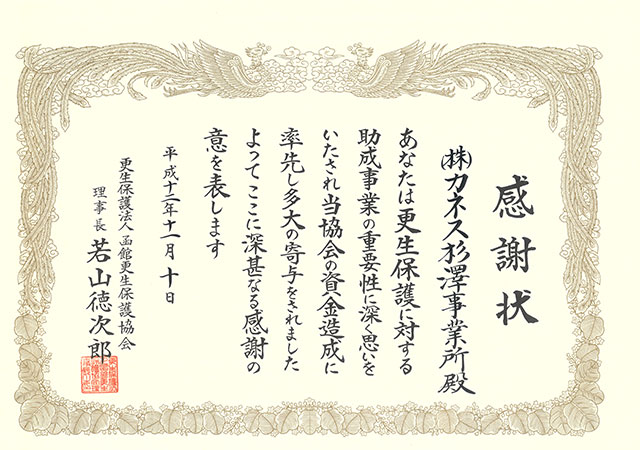 感謝状
㈱カネス杉澤事業所殿
あなたは更生保護に対する
助成事業の重要性に深く思いを
いたされ当協会の資金造成に
率先し多大の寄与をされました
よってここに深甚なる感謝の
意を表します
平成十二年十一月十日
更生保護法人函館更生保護協会
理事長 若山徳次郎